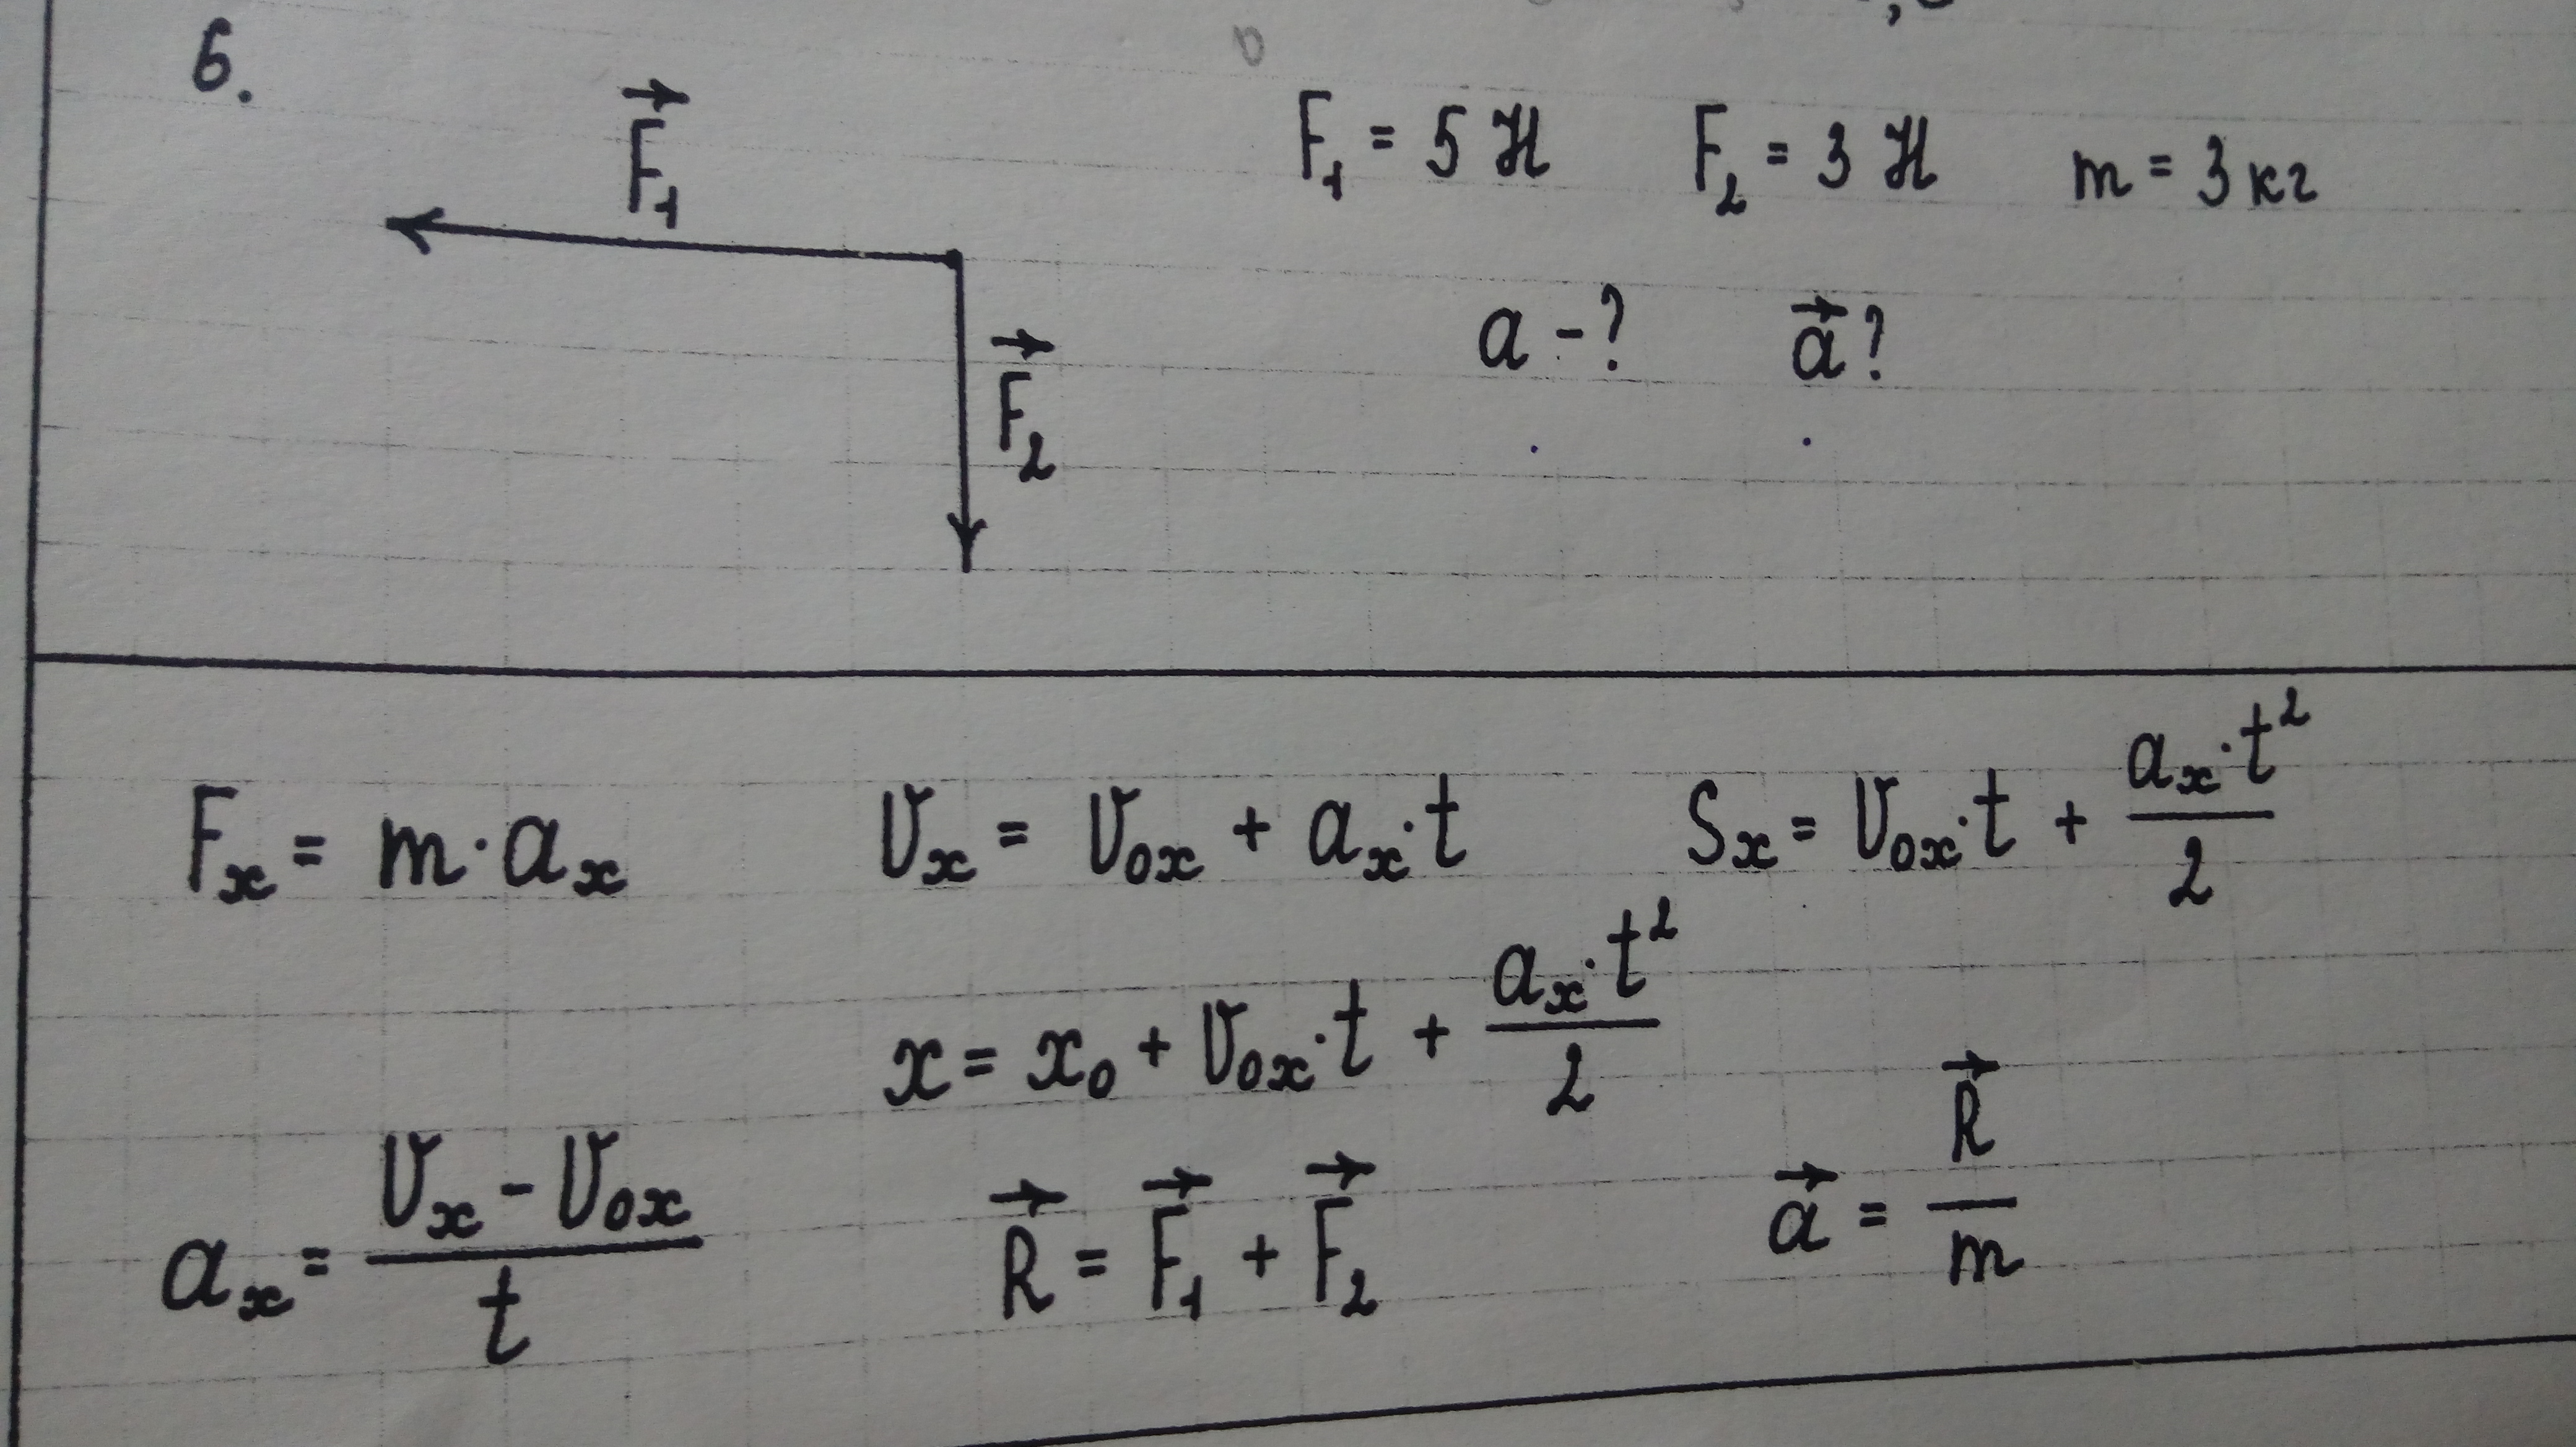 6.
F⃗₁
F₁ = 5 Н F₂ = 3 Н m = 3 кг
F⃗₂
a - ? a⃗ ?
Fₓ = m · aₓ
Vₓ = V₀ₓ + aₓ · t
Sₓ = V₀ₓ · t + aₓ · t² / 2
x = x₀ + V₀ₓ · t + aₓ · t² / 2
aₓ = Vₓ - V₀ₓ / t
R⃗ = F⃗₁ + F⃗₂
a⃗ = R⃗ / m